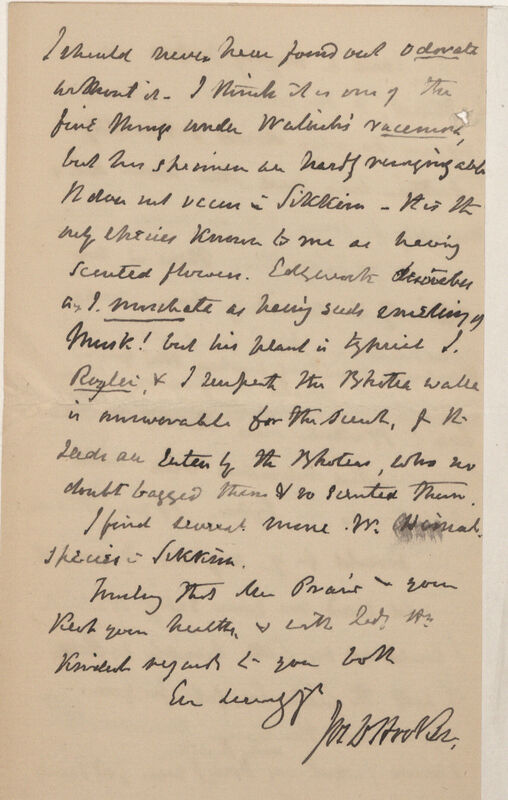 I should never have found out odorata
without it – I think it is one of the
five things under Wallich's racemosa,
but his specimen are hardly recognizable
It does not occur in Sikkim – It is the
only species known to me as having
scented flowers. Edgeworth describes
an I. moschata as having seeds smelling of
Musk! but his plant is typical I.
Roylei, & I suspect the Bhotea walla
is answerable for the scent, for the
seeds are eaten by the Bhoteas, who no
doubt bagged them & so scented them.
I find several more W. Himal.
species in Sikkim.
Trusting that Mrs Prain & you
keep your health, & with Lady H's
kindest regards to you both
Ever sincerely yrs
Jos D Hooker.